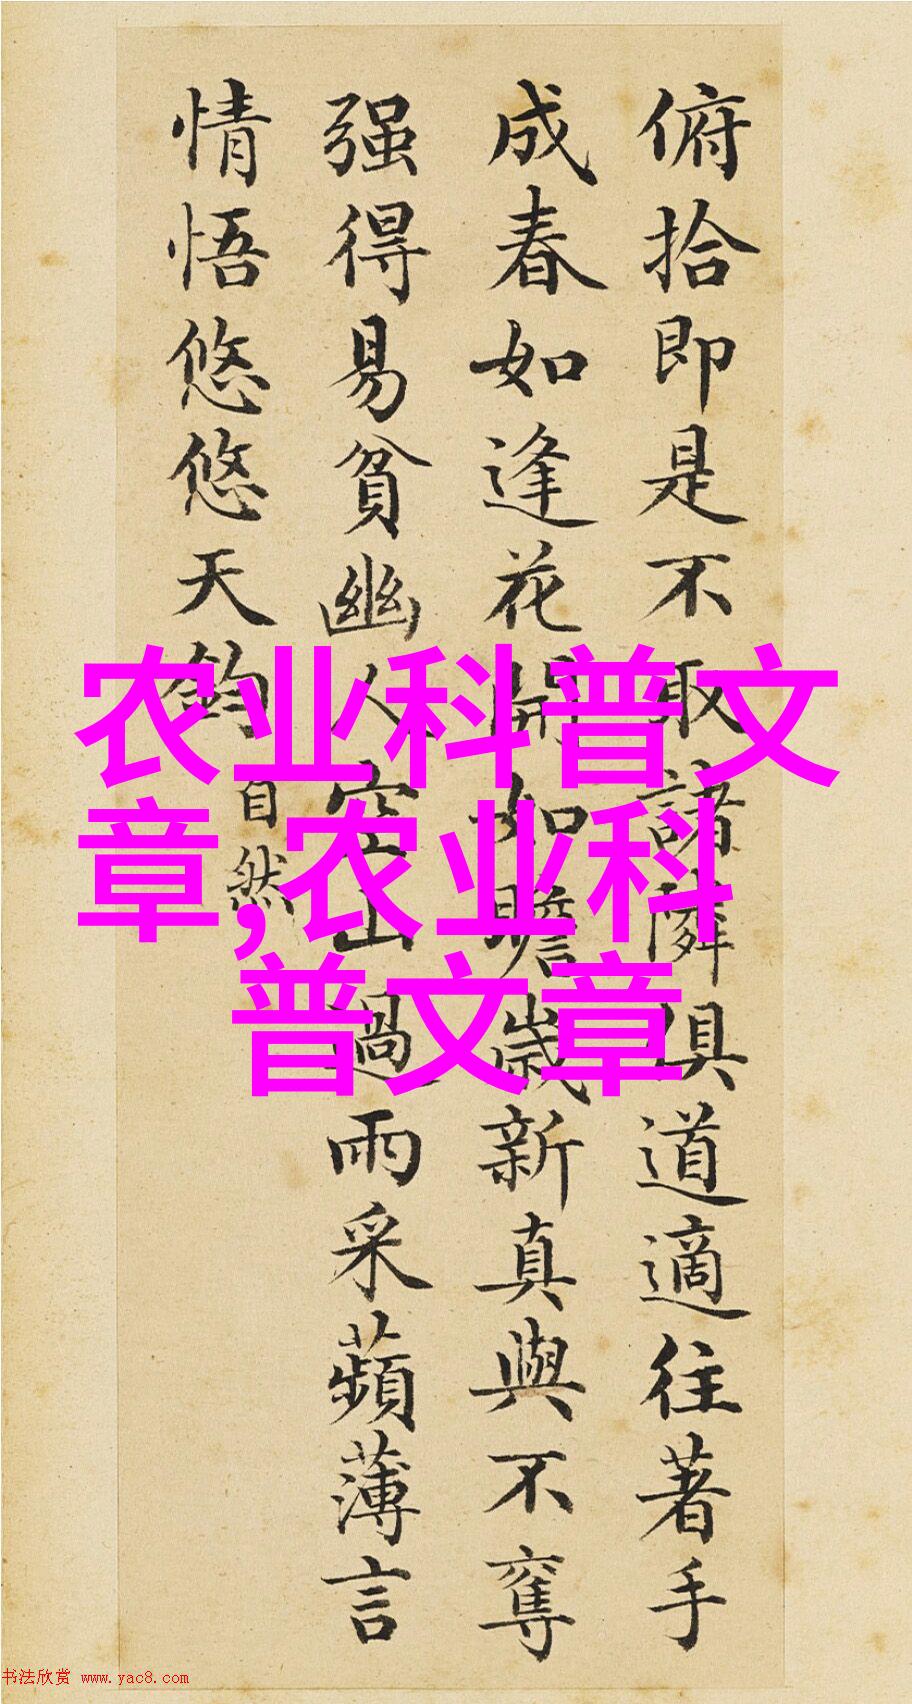 俯拾即是不取諸隣俱道適往著手
成春如逢花開如瞻歲新真與不奪
强得易貧幽人空山過雨采蘋薄言
情悟悠悠天鈞
自然
农业科普文
章,农业科
普文章
书法欣赏 www.yac8.com